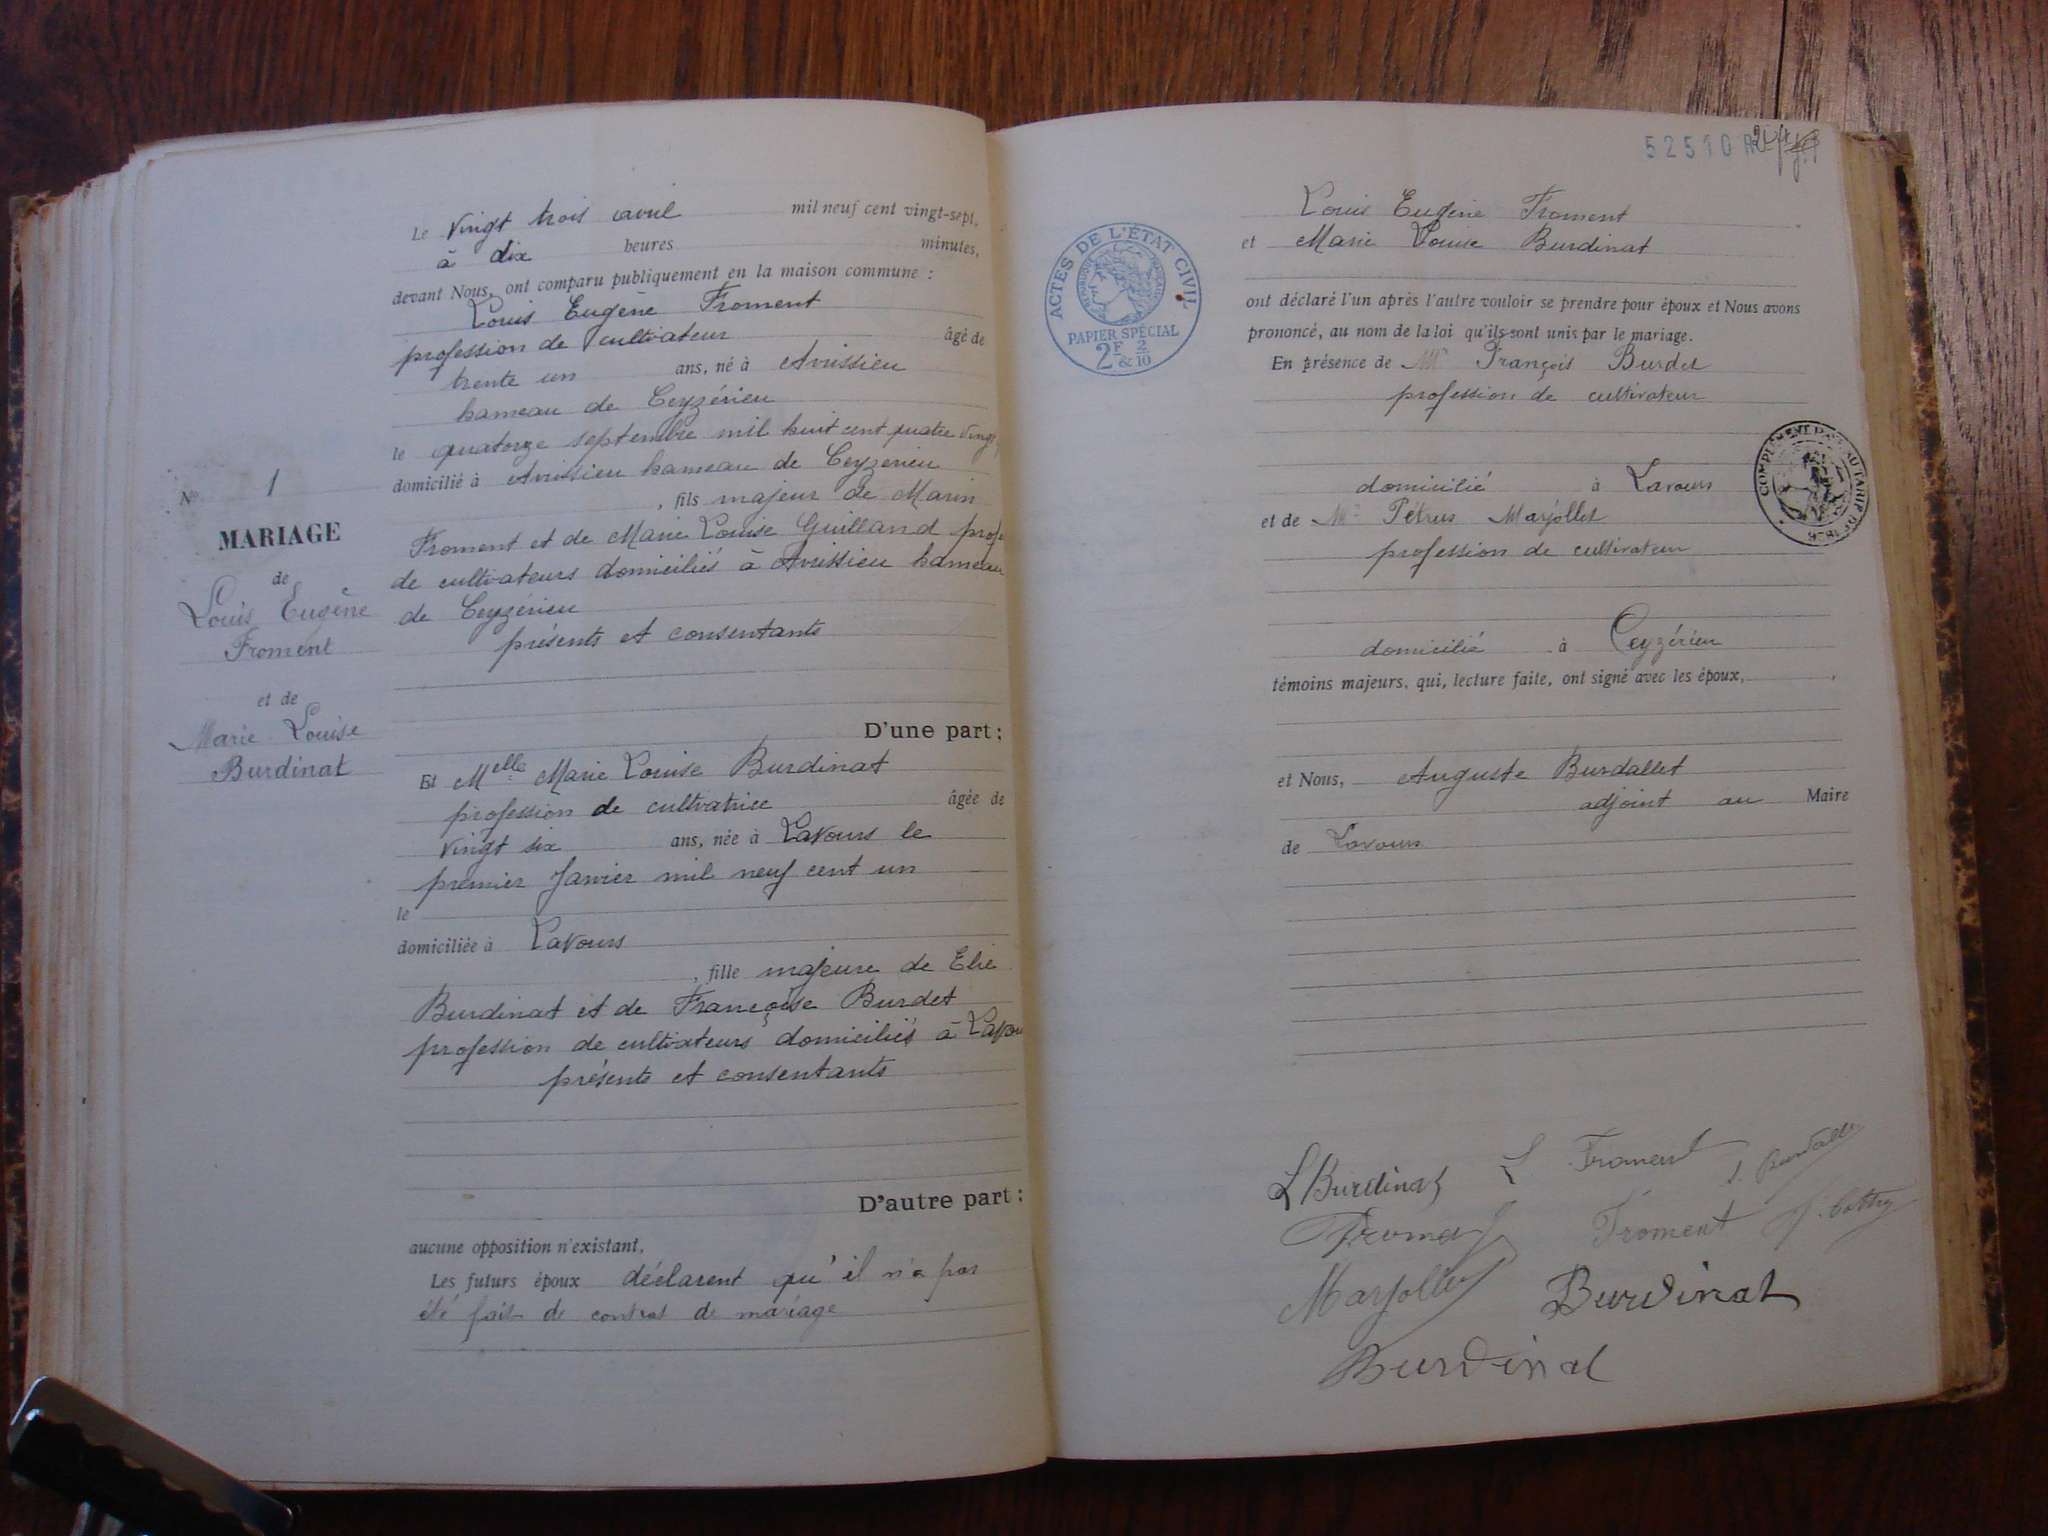 Le vingt trois avril mil neuf cent vingt-sept,
à dix heures minutes,
devant Nous, ont comparu publiquement en la maison commune :
Louis Eugène Froment
profession de cultivateur âgé de
trente un ans, né à Avrissieu
hameau de Ceyzérieu
le quatorze septembre mil huit cent quatre vingt
domicilié à Avrissieu hameau de Ceyzerieu
, fils majeur de Marin
Froment et de Marie Louise Guilland profe
de cultivateurs domiciliés à Avrissieu hameau
de Ceyzérieu
présents et consentants
D'une part :
Nº 1
MARIAGE
de
Louis Eugène
Froment
et de
Marie Louise
Burdinat
Et Melle Marie Louise Burdinat
profession de cultivatrice âgée de
vingt six ans, née à Lavours le
premier Janvier mil neuf cent un
le
domiciliée à Lavours
, fille majeure de Elie
Burdinat et de Françoise Burdet
profession de cultivateurs domiciliés à Lavou
présents et consentants
D'autre part :
aucune opposition n'existant,
Les futurs époux déclarent qu'il n'a pas
été fait de contrat de mariage
52510
ACTES DE L'ÉTAT CIVIL
PAPIER SPÉCIAL
2F & 2/10
Louis Eugène Froment
et Marie Louise Burdinat
ont déclaré l'un après l'autre vouloir se prendre pour époux et Nous avons
prononcé, au nom de la loi qu'ils sont unis par le mariage.
En présence de Mr François Burdet
profession de cultivateur
domicilié à Lavours
et de Mr Pétrus Marjollet
profession de cultivateur
domicilié à Ceyzérieu
témoins majeurs, qui, lecture faite, ont signé avec les époux,
et Nous, Auguste Burdallet
adjoint au Maire
de Lavours
L Burdinat L Froment
Froment Froment
Marjollet Burdinat
Burdinat